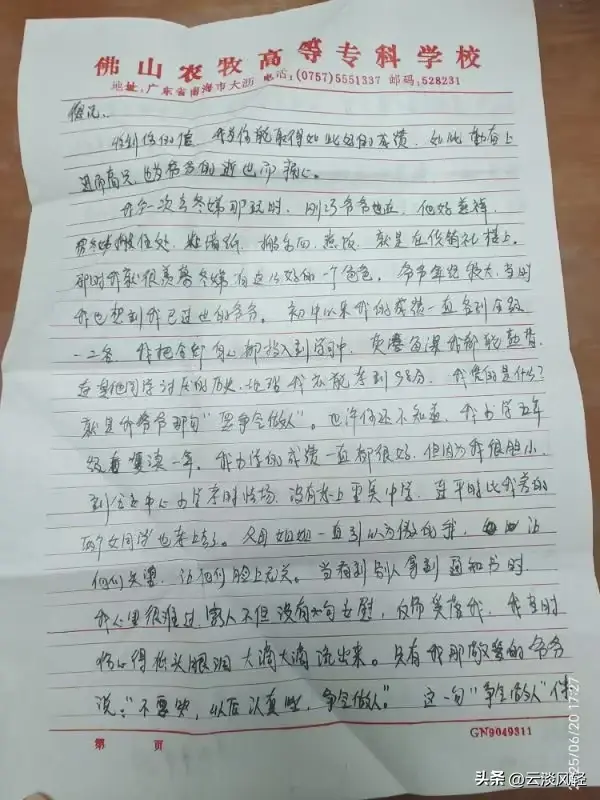 佛山农牧高等专科学校
地址:广东省南海市大沥 电话:(0757)5551337 邮码:528231
收到你的信,我为你能取得如此好的成绩,如此勤奋上
进而高兴,也为爷爷的逝世而痛心。
第一次去冬娣那玩时,刚巧爷爷也在,他好慈祥,
就是在供销社楼上。
那时我就很羡慕冬娣有这么好的一个爸爸。爷爷年纪较大,当时
我也想到我已逝世的爷爷。初中以来我的成绩一直名列全级
一二名,我把全部身心都投入到学习中,
连其他同学讨厌的历史、地理我亦能考到98分,我凭的是什么?
就是我爷爷那句“要争全做人”。也许你还不知道,我小学五年
级重复读一年。我小学的成绩一直都很好,但因为我很胆小,
到公社中心小学考时怯场,没有考上重点中学,连平时比我差的
两个女同学也考上了。父母姐姐一直引以为傲的我,让
他们失望,让他们脸上无光。当看到别人拿到通知书时
我心里很难过,家人不但没有一句安慰,反而笑落我,我当时
伤心得低头眼泪大滴大滴流出来。只有我那敬爱的爷爷
说:“不要哭,以后认真些,争全做人。”这一句“争全做人”使
第 页
GN9049311
2025/06/20 17:27
头条 @云淡风轻